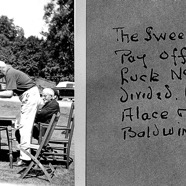 The Swee
Pay Off
Ruck N
divided.
Alace
Baldwin